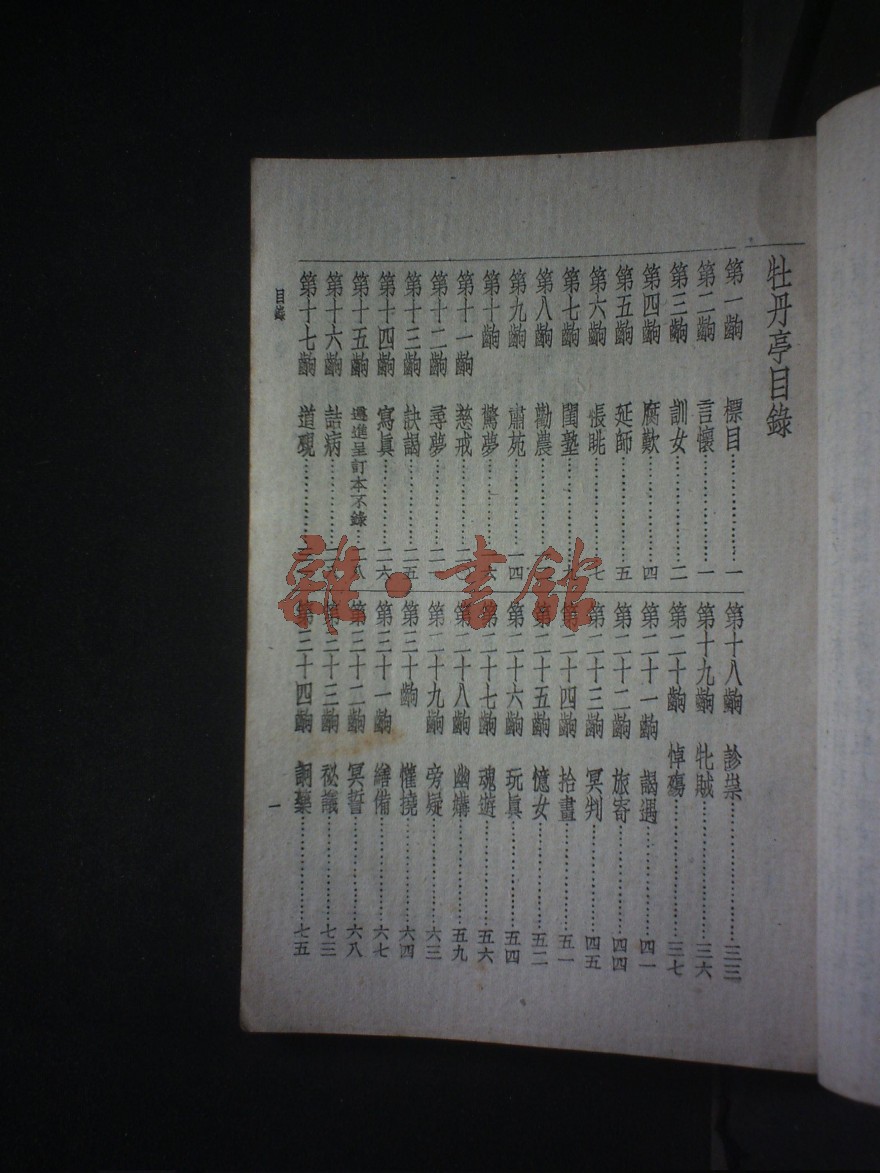 牡丹亭目錄
第一齣 標目……………一
第二齣 言懷……………一
第三齣 訓女……………二
第四齣 腐歎……………四
第五齣 延師……………五
第六齣 悵眺……………七
第七齣 閨塾……………九
第八齣 勸農……………
第九齣 肅苑……………一四
第十齣 驚夢……………六
第十一齣 慈戒……………
第十二齣 尋夢……………二一
第十三齣 訣謁……………二五
第十四齣 寫眞……………二六
第十五齣 遵進呈訂本不錄…二八
第十六齣 詰病……………二
第十七齣 道覡……………
第十八齣 診祟……………三三
第十九齣 牝賊……………三六
第二十齣 悼殤……………三七
第二十一齣 謁遇……………四一
第二十二齣 旅寄……………四四
第二十三齣 冥判……………四五
第二十四齣 拾畫……………五一
第二十五齣 憶女……………五二
第二十六齣 玩眞……………五四
第二十七齣 魂遊……………五六
第二十八齣 幽媾……………五九
第二十九齣 旁疑……………六三
第三十齣 懽撓……………六四
第三十一齣 繕備……………六七
第三十二齣 冥誓……………六八
第三十三齣 祕議……………七三
第三十四齣 詗藥……………七五
目錄
一
雜·書館